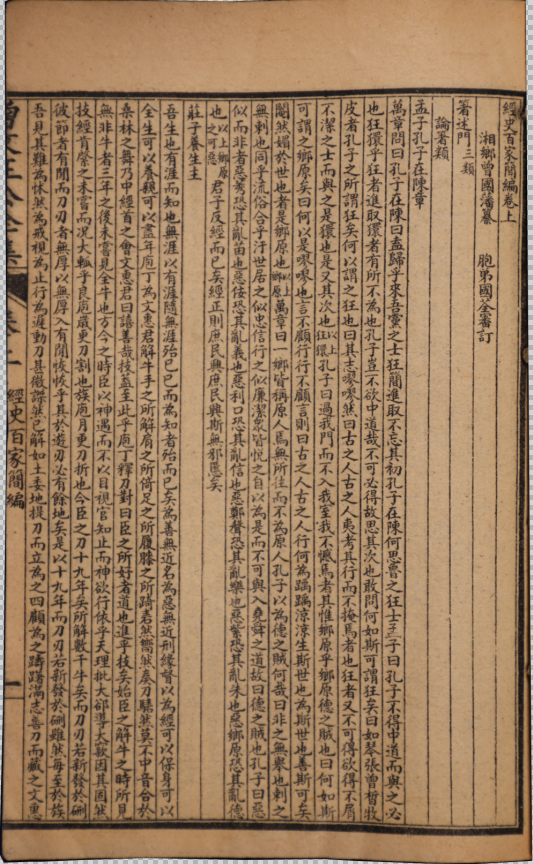 經史百家簡編卷上
湘鄉曾國藩纂 胞弟國荃審訂
箸述門三類
論著類
孟子孔子在陳章
萬章問曰孔子在陳曰盍歸乎來吾黨之士狂簡進取不忘其初孔子在陳何思魯之狂士孟子曰孔子不得中道而與之必
也狂獧乎狂者進取獧者有所不為也孔子豈不欲中道哉不可必得故思其次也敢問何如斯可謂狂矣曰如琴張曾晳牧
皮者孔子之所謂狂矣何以謂之狂也曰其志嘐嘐然曰古之人古之人夷考其行而不掩焉者也狂者又不可得欲得不屑
不潔之士而與之是獧也是又其次也以上狂獧孔子曰過我門而不入我室我不憾焉者其惟鄉原乎鄉原德之賊也曰何如斯
可謂之鄉原矣曰何以是嘐嘐也言不顧行行不顧言則曰古之人古之人行何為踽踽涼涼生斯世也為斯世也善斯可矣
閹然媚於世也者是鄉原也以上鄉原萬章曰一鄉皆稱原人焉無所往而不為原人孔子以為德之賊何哉曰非之無舉也刺之
無刺也同乎流俗合乎汙世居之似忠信行之似廉潔眾皆悅之自以為是而不可與入堯舜之道故曰德之賊也孔子曰惡
似而非者惡莠恐其亂苗也惡佞恐其亂義也惡利口恐其亂信也惡鄭聲恐其亂樂也惡紫恐其亂朱也惡鄉原恐其亂德
也以上鄉原之可惡君子反經而已矣經正則庶民興庶民興斯無邪慝矣
莊子養生主
吾生也有涯而知也無涯以有涯隨無涯殆已已而為知者殆而已矣為善無近名為惡無近刑緣督以為經可以保身可以
全生可以養親可以盡年庖丁為文惠君解牛手之所觸肩之所倚足之所履膝之所踦砉然嚮然奏刀騞然莫不中音合於
桑林之舞乃中經首之會文惠君曰譆善哉技蓋至此乎庖丁釋刀對曰臣之所好者道也進乎技矣始臣之解牛之時所見
無非牛者三年之後未嘗見全牛也方今之時臣以神遇而不以目視官知止而神欲行依乎天理批大郤導大窾因其固然
技經肯綮之未嘗而況大軱乎良庖歲更刀割也族庖月更刀折也今臣之刀十九年矣所解數千牛矣而刀刃若新發於硎
彼節者有閒而刀刃者無厚以無厚入有閒恢恢乎其於遊刃必有餘地矣是以十九年而刀刃若新發於硎雖然每至於族
吾見其難為怵然為戒視為止行為遲動刀甚微謋然已解如土委地提刀而立為之四顧為之躊躇滿志善刀而藏之文惠
經史百家簡編